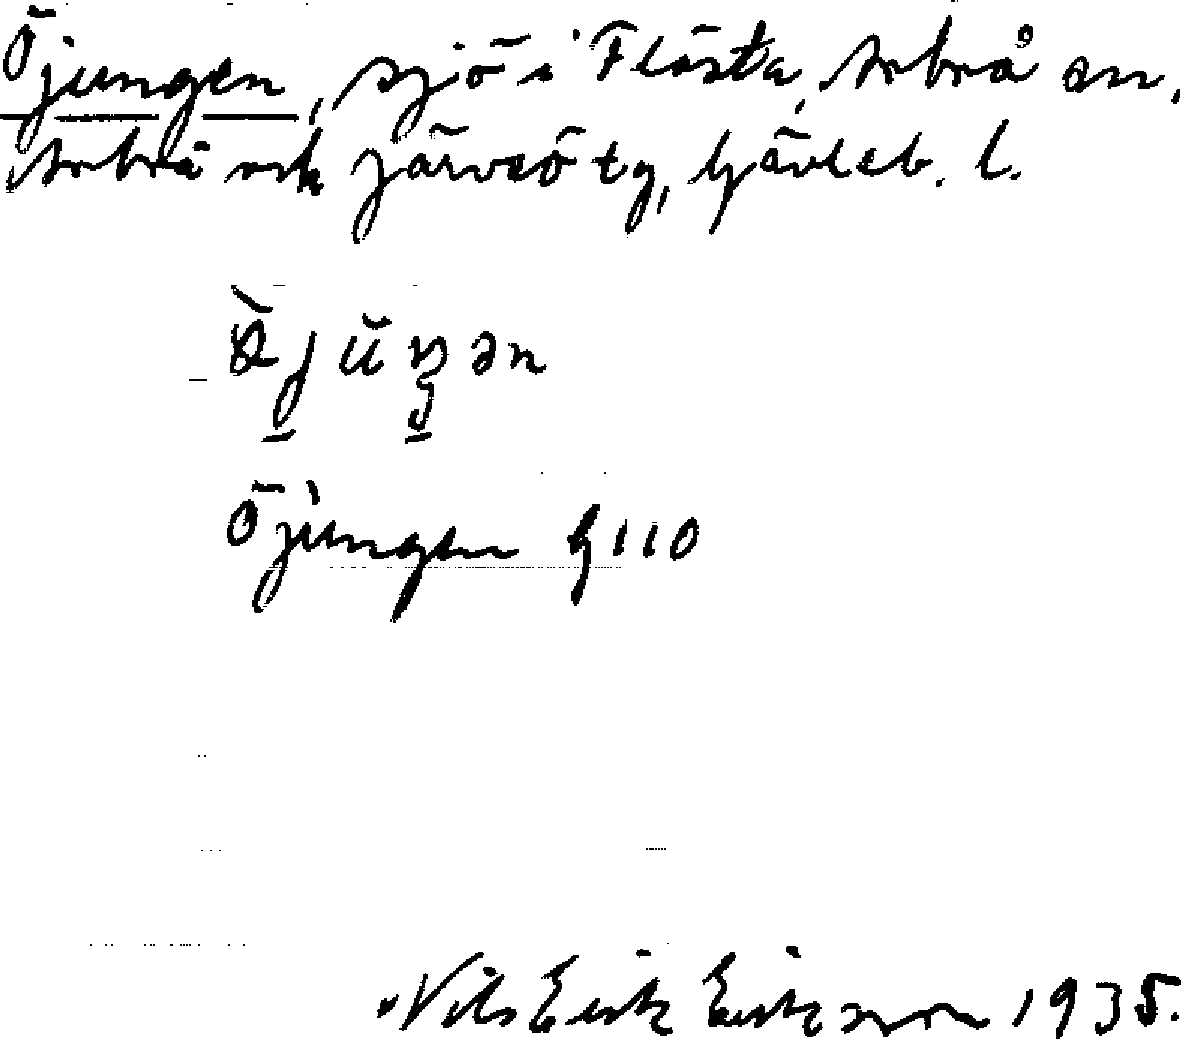 Öjungen, sjö i Flästa, Arbrå sn,
Arbrå och Järvsö tg, Gävleb. l.
Öjungen G 110
Nils Erik Eriksson 1935.